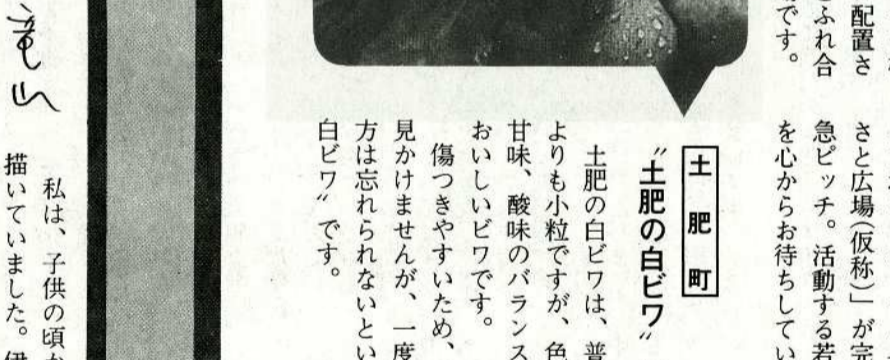 配置さ
ふれ合
です。
さと広場(仮称)」が完
急ピッチ。活動する若
を心からお待ちしてい
土肥町
〝土肥の白ビワ〟
土肥の白ビワは、普
よりも小粒ですが、色
甘味、酸味のバランス
おいしいビワです。
傷つきやすいため、
見かけませんが、一度
方は忘れられないとい
白ビワ〟です。
私は、子供の頃か
描いていました。伊